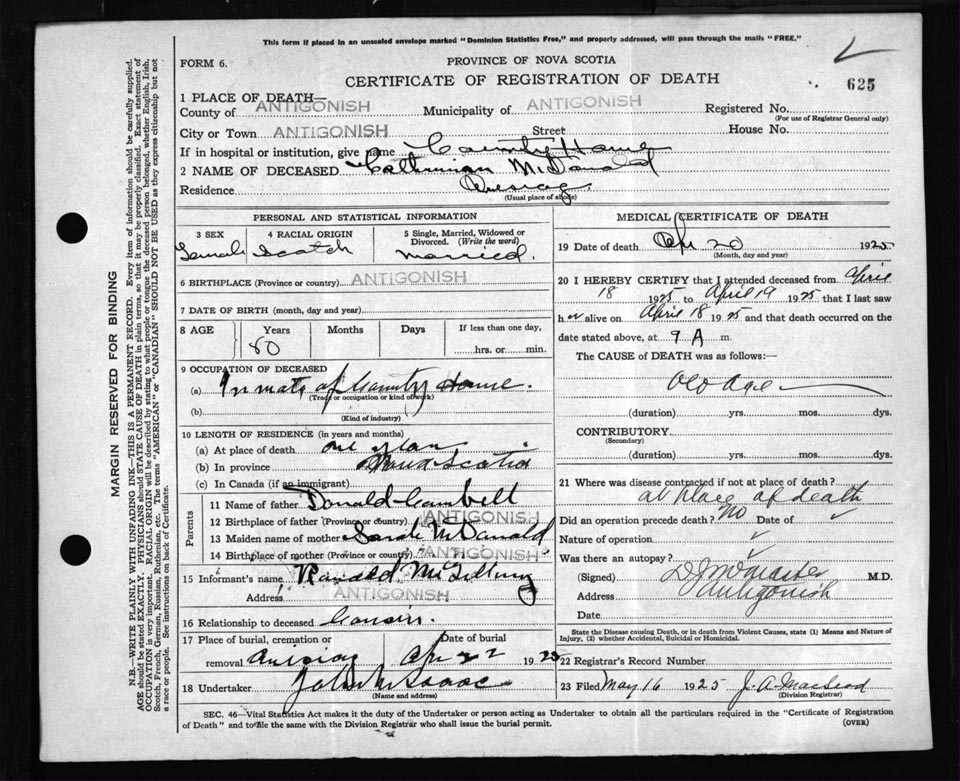 This form if placed in an unsealed envelope marked "Dominion Statistics Free," and properly addressed, will pass through the mails "FREE."
FORM 6.
PROVINCE OF NOVA SCOTIA
CERTIFICATE OF REGISTRATION OF DEATH
625
1 PLACE OF DEATH—
County of ANTIGONISH Municipality of ANTIGONISH Registered No.
(For use of Registrar General only)
City or Town ANTIGONISH Street House No.
If in hospital or institution, give name County Home
2 NAME OF DECEASED McDonald
Residence
(Usual place of abode)
PERSONAL AND STATISTICAL INFORMATION
3 SEX 4 RACIAL ORIGIN 5 Single, Married, Widowed or Divorced. (Write the word)
Female Scotch Married.
6 BIRTHPLACE (Province or country) ANTIGONISH
7 DATE OF BIRTH (month, day and year)
8 AGE Years Months Days If less than one day,
80 hrs. or min.
9 OCCUPATION OF DECEASED
(a) Inmate of County Home.
(Trade or occupation or kind of work)
(b)
(Kind of industry)
10 LENGTH OF RESIDENCE (in years and months)
(a) At place of death one year
(b) In province Nova Scotia
(c) In Canada (if an immigrant)
Parents
11 Name of father Donald Cambell
12 Birthplace of father (Province or country) ANTIGONISH
13 Maiden name of mother Sarah McDonald
14 Birthplace of mother (Province or country) " " ANTIGONISH
15 Informant's name Ranald
Address ANTIGONISH
16 Relationship to deceased Cousin.
17 Place of burial, cremation or removal Date of burial
Apr 22 1925
18 Undertaker John
(Name and address)
MEDICAL CERTIFICATE OF DEATH
19 Date of death Apr 20 1925
(Month, day and year)
20 I HEREBY CERTIFY that I attended deceased from April
18 1925 to April 19 1925 that I last saw
her alive on April 18 1925 and that death occurred on the
date stated above, at 9 A m.
The CAUSE of DEATH was as follows:—
Old Age
(duration) yrs. mos. dys.
CONTRIBUTORY
(Secondary)
(duration) yrs. mos. dys.
21 Where was disease contracted if not at place of death?
at place of death
Did an operation precede death? No Date of ✓
Nature of operation ✓
Was there an autopsy? ✓
(Signed) M.D.
Address Antigonish
Date
State the Disease causing Death, or in death from Violent Causes, state (1) Means and Nature of Injury, (2) whether Accidental, Suicidal or Homicidal.
22 Registrar's Record Number
23 Filed May 16 1925 J. A. MacLeod
(Division Registrar)
SEC. 46—Vital Statistics Act makes it the duty of the Undertaker or person acting as Undertaker to obtain all the particulars required in the "Certificate of Registration
of Death" and to file the same with the Division Registrar who shall issue the burial permit.
(OVER)
MARGIN RESERVED FOR BINDING
N.B.—WRITE PLAINLY WITH UNFADING INK—THIS IS A PERMANENT RECORD. Every item of information should be carefully supplied.
AGE should be stated EXACTLY. PHYSICIANS should STATE CAUSE OF DEATH in plain terms, so that it may be properly classified. Exact statement of
OCCUPATION is very important. RACIAL ORIGIN will be described by stating to what people or tongue the deceased person belonged, whether English, Irish,
Scotch, French, German, Russian, Ruthenian, etc. The terms "AMERICAN" or "CANADIAN" SHOULD NOT BE USED as they express citizenship but not
a race or people. See instructions on back of Certificate.